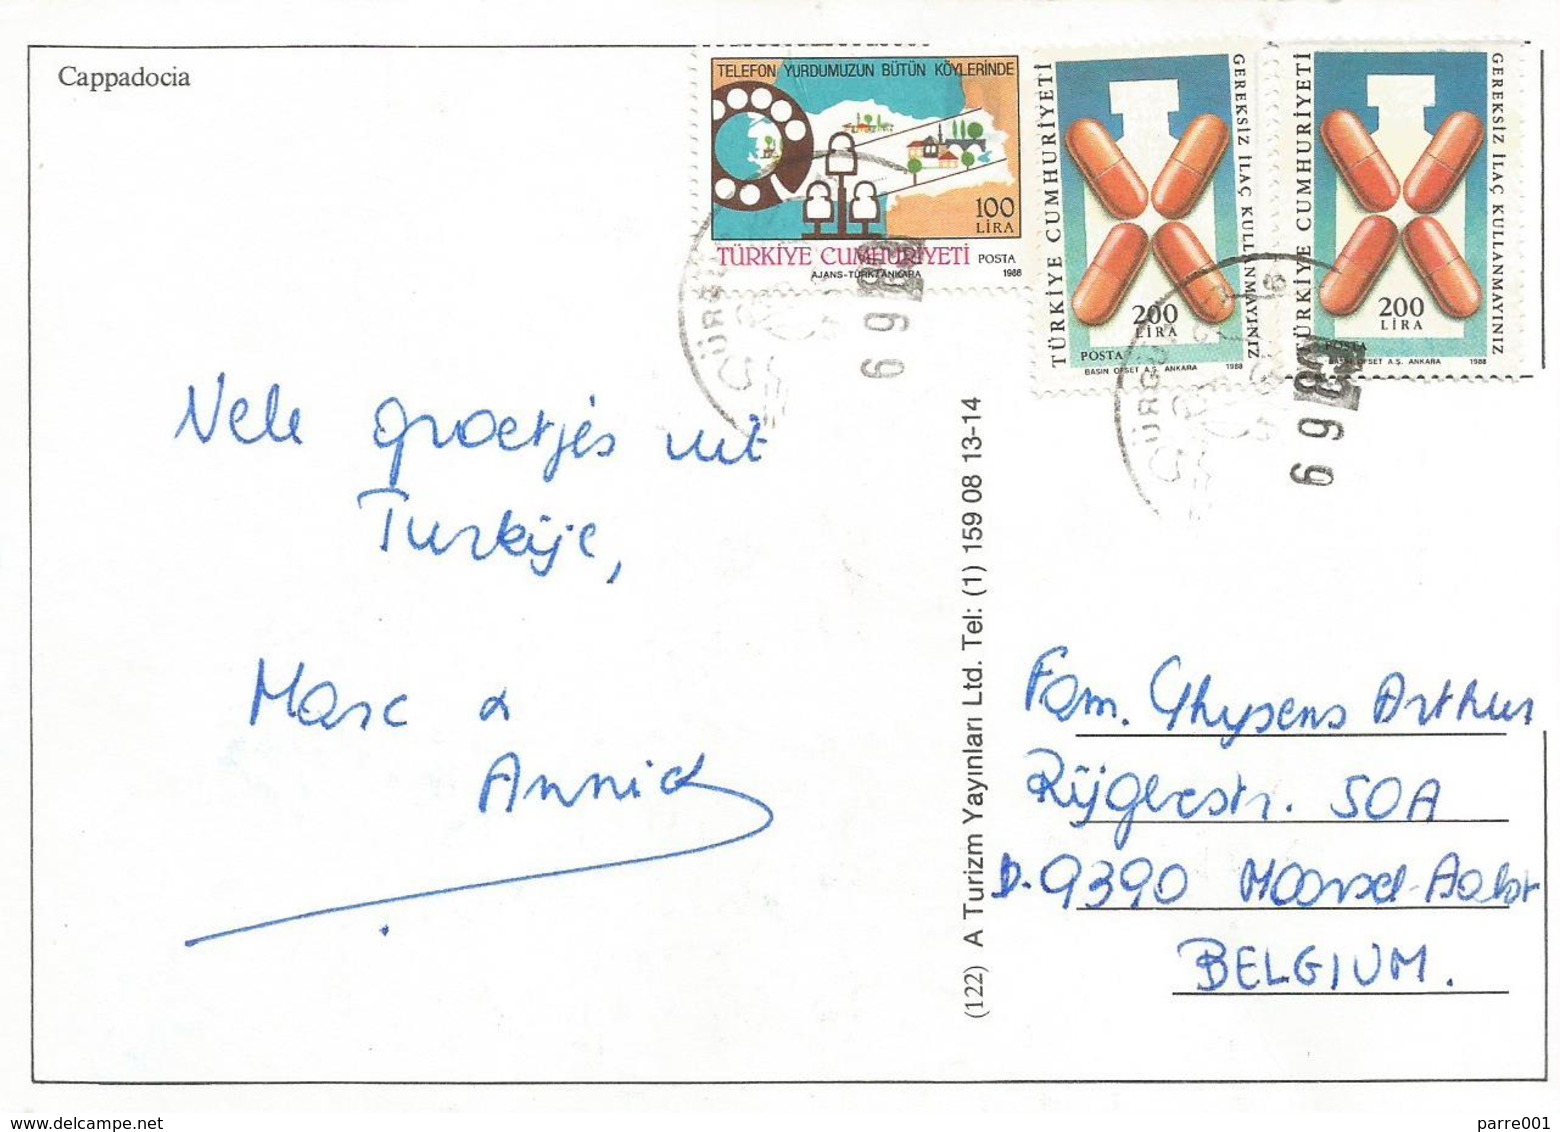 Cappadocia
TELEFON YURDUMUZUN BÜTÜN KÖYLERİNDE
100
LİRA
TÜRKİYE CUMHURİYETİ POSTA
AJANS-TÜRK/ANKARA 1988
TÜRKİYE CUMHURİYETİ
GEREKSİZ İLAÇ KULLANMAYINIZ
200
LİRA
POSTA
BASIN OFSET A.Ş. ANKARA 1988
TÜRKİYE CUMHURİYETİ
GEREKSİZ İLAÇ KULLANMAYINIZ
200
LİRA
POSTA
BASIN OFSET A.Ş. ANKARA 1988
Vele groetjes uit
Turkije,
Marc &
Annick
(122) A Turizm Yayınları Ltd. Tel: (1) 159 08 13-14
Fam. Ghysens Arthur
Rijgerstr. 50A
9390 Moorsel-Aalst
BELGIUM.
www.delcampe.net
parre001